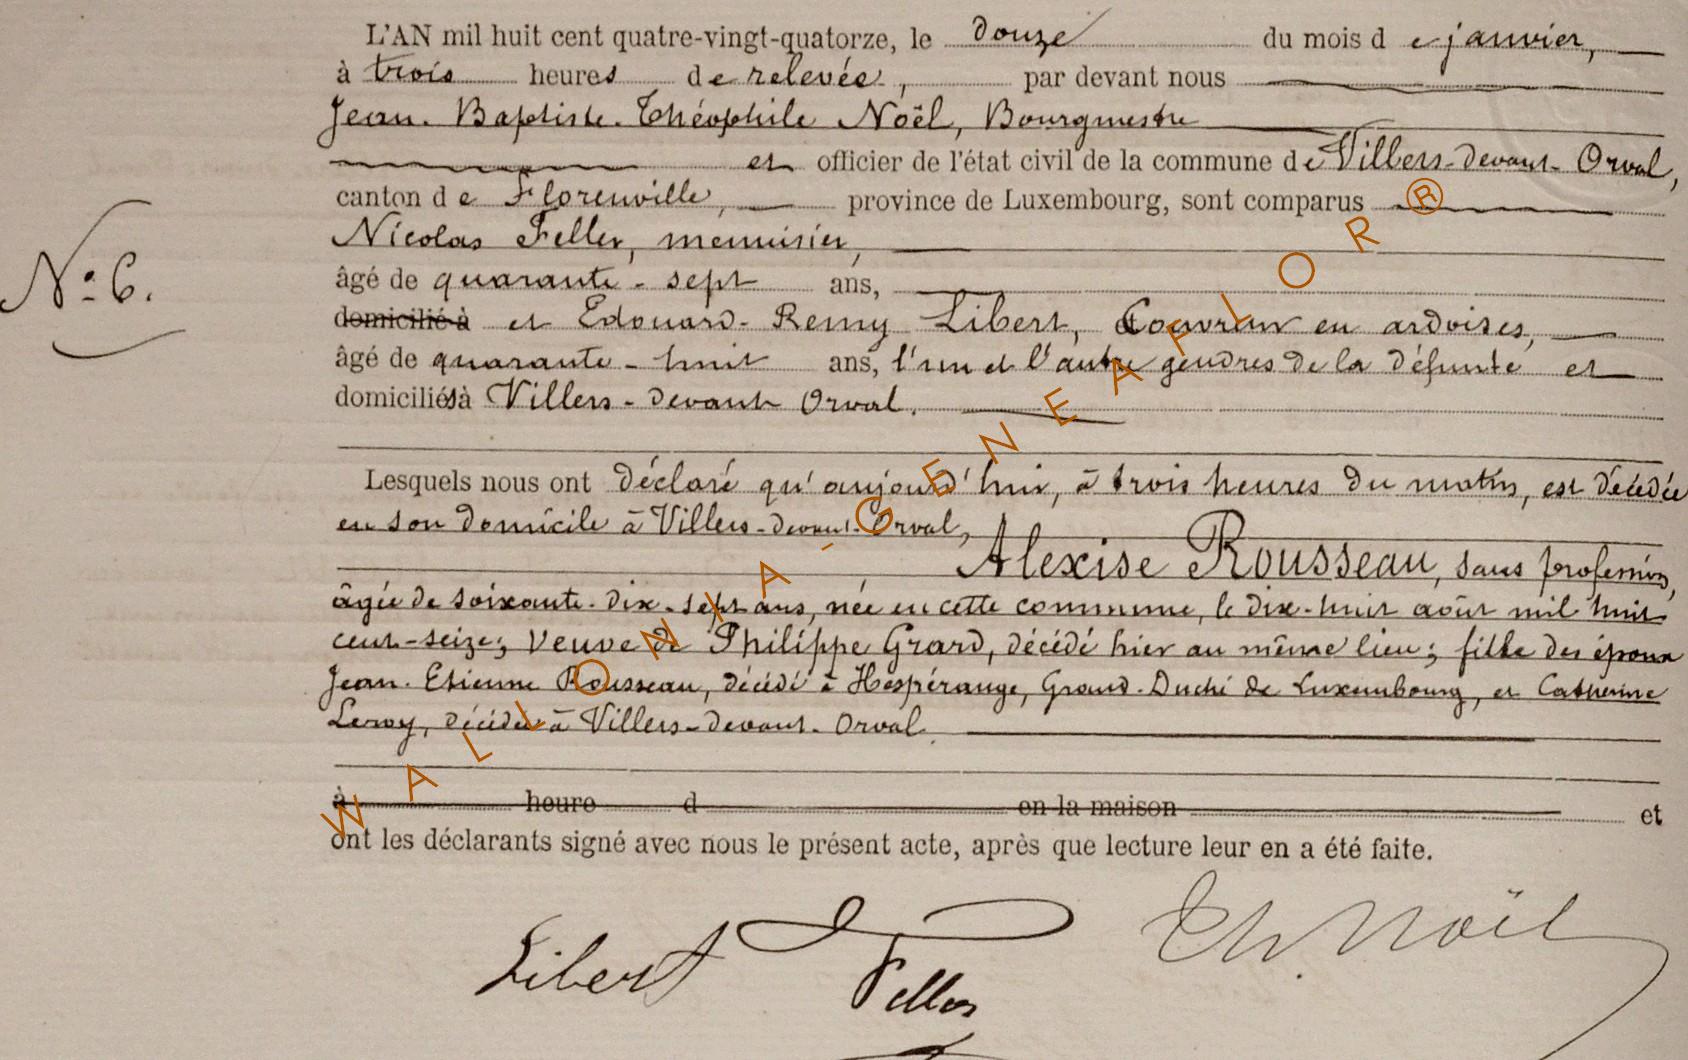 L'AN mil huit cent quatre-vingt-quatorze, le douze du mois de janvier,
à trois heures de relevée, par devant nous
Jean-Baptiste-Théophile Noël, Bourgmestre
et officier de l'état civil de la commune de Villers-devant-Orval,
canton de Florenville, province de Luxembourg, sont comparus
Nicolas Feller, menuisier,
N° 6.
âgé de quarante-sept ans,
domicilié à et Edouard-Remy Libert, Couvreur en ardoises,
âgé de quarante-huit ans, l'un et l'autre gendres de la défunte et
domiciliés à Villers-devant Orval.
Lesquels nous ont déclaré qu'aujourd'hui, à trois heures du matin, est décédée
en son domicile à Villers-devant-Orval,
Alexise Rousseau, sans profession,
âgée de soixante-dix-sept ans, née en cette commune, le dix-huit août mil huit
cent-seize; veuve de Philippe Grard, décédé hier au même lieu; fille des époux
Jean-Etienne Rousseau, décédé à Hespérange, Grand-Duché de Luxembourg, et Catherine
Leroy, décédée à Villers-devant-Orval.
à heure d en la maison et
ont les déclarants signé avec nous le présent acte, après que lecture leur en a été faite.
Libert Feller Th. Noël
WALLONIA-GENEAFLOR®